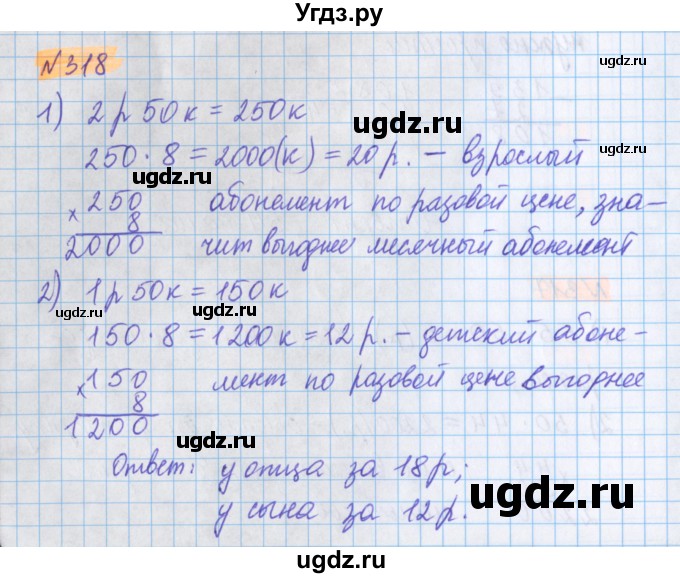 Угдз.ру
ugdz.ru
N318
ugdz.ru
1) 2 р 50 к = 250 к
ugdz.ru
250 · 8 = 2000(к) = 20 р. – взрослый
ugdz.ru
ugdz.ru
× 250 абонемент по разовой цене, зна-
8
2000 чит выгоднее месячный абонемент
2) 1 р 50 к = 150 к
ugdz.ru
ugdz.ru
150 · 8 = 1200 к = 12 р. – детский абоне-
× 150 мент по разовой цене выгоднее
8
1200
ugdz.ru
ugdz.ru
Ответ: у отца за 18 р;
ugdz.ru
у сына за 12 р.
ugdz.ru